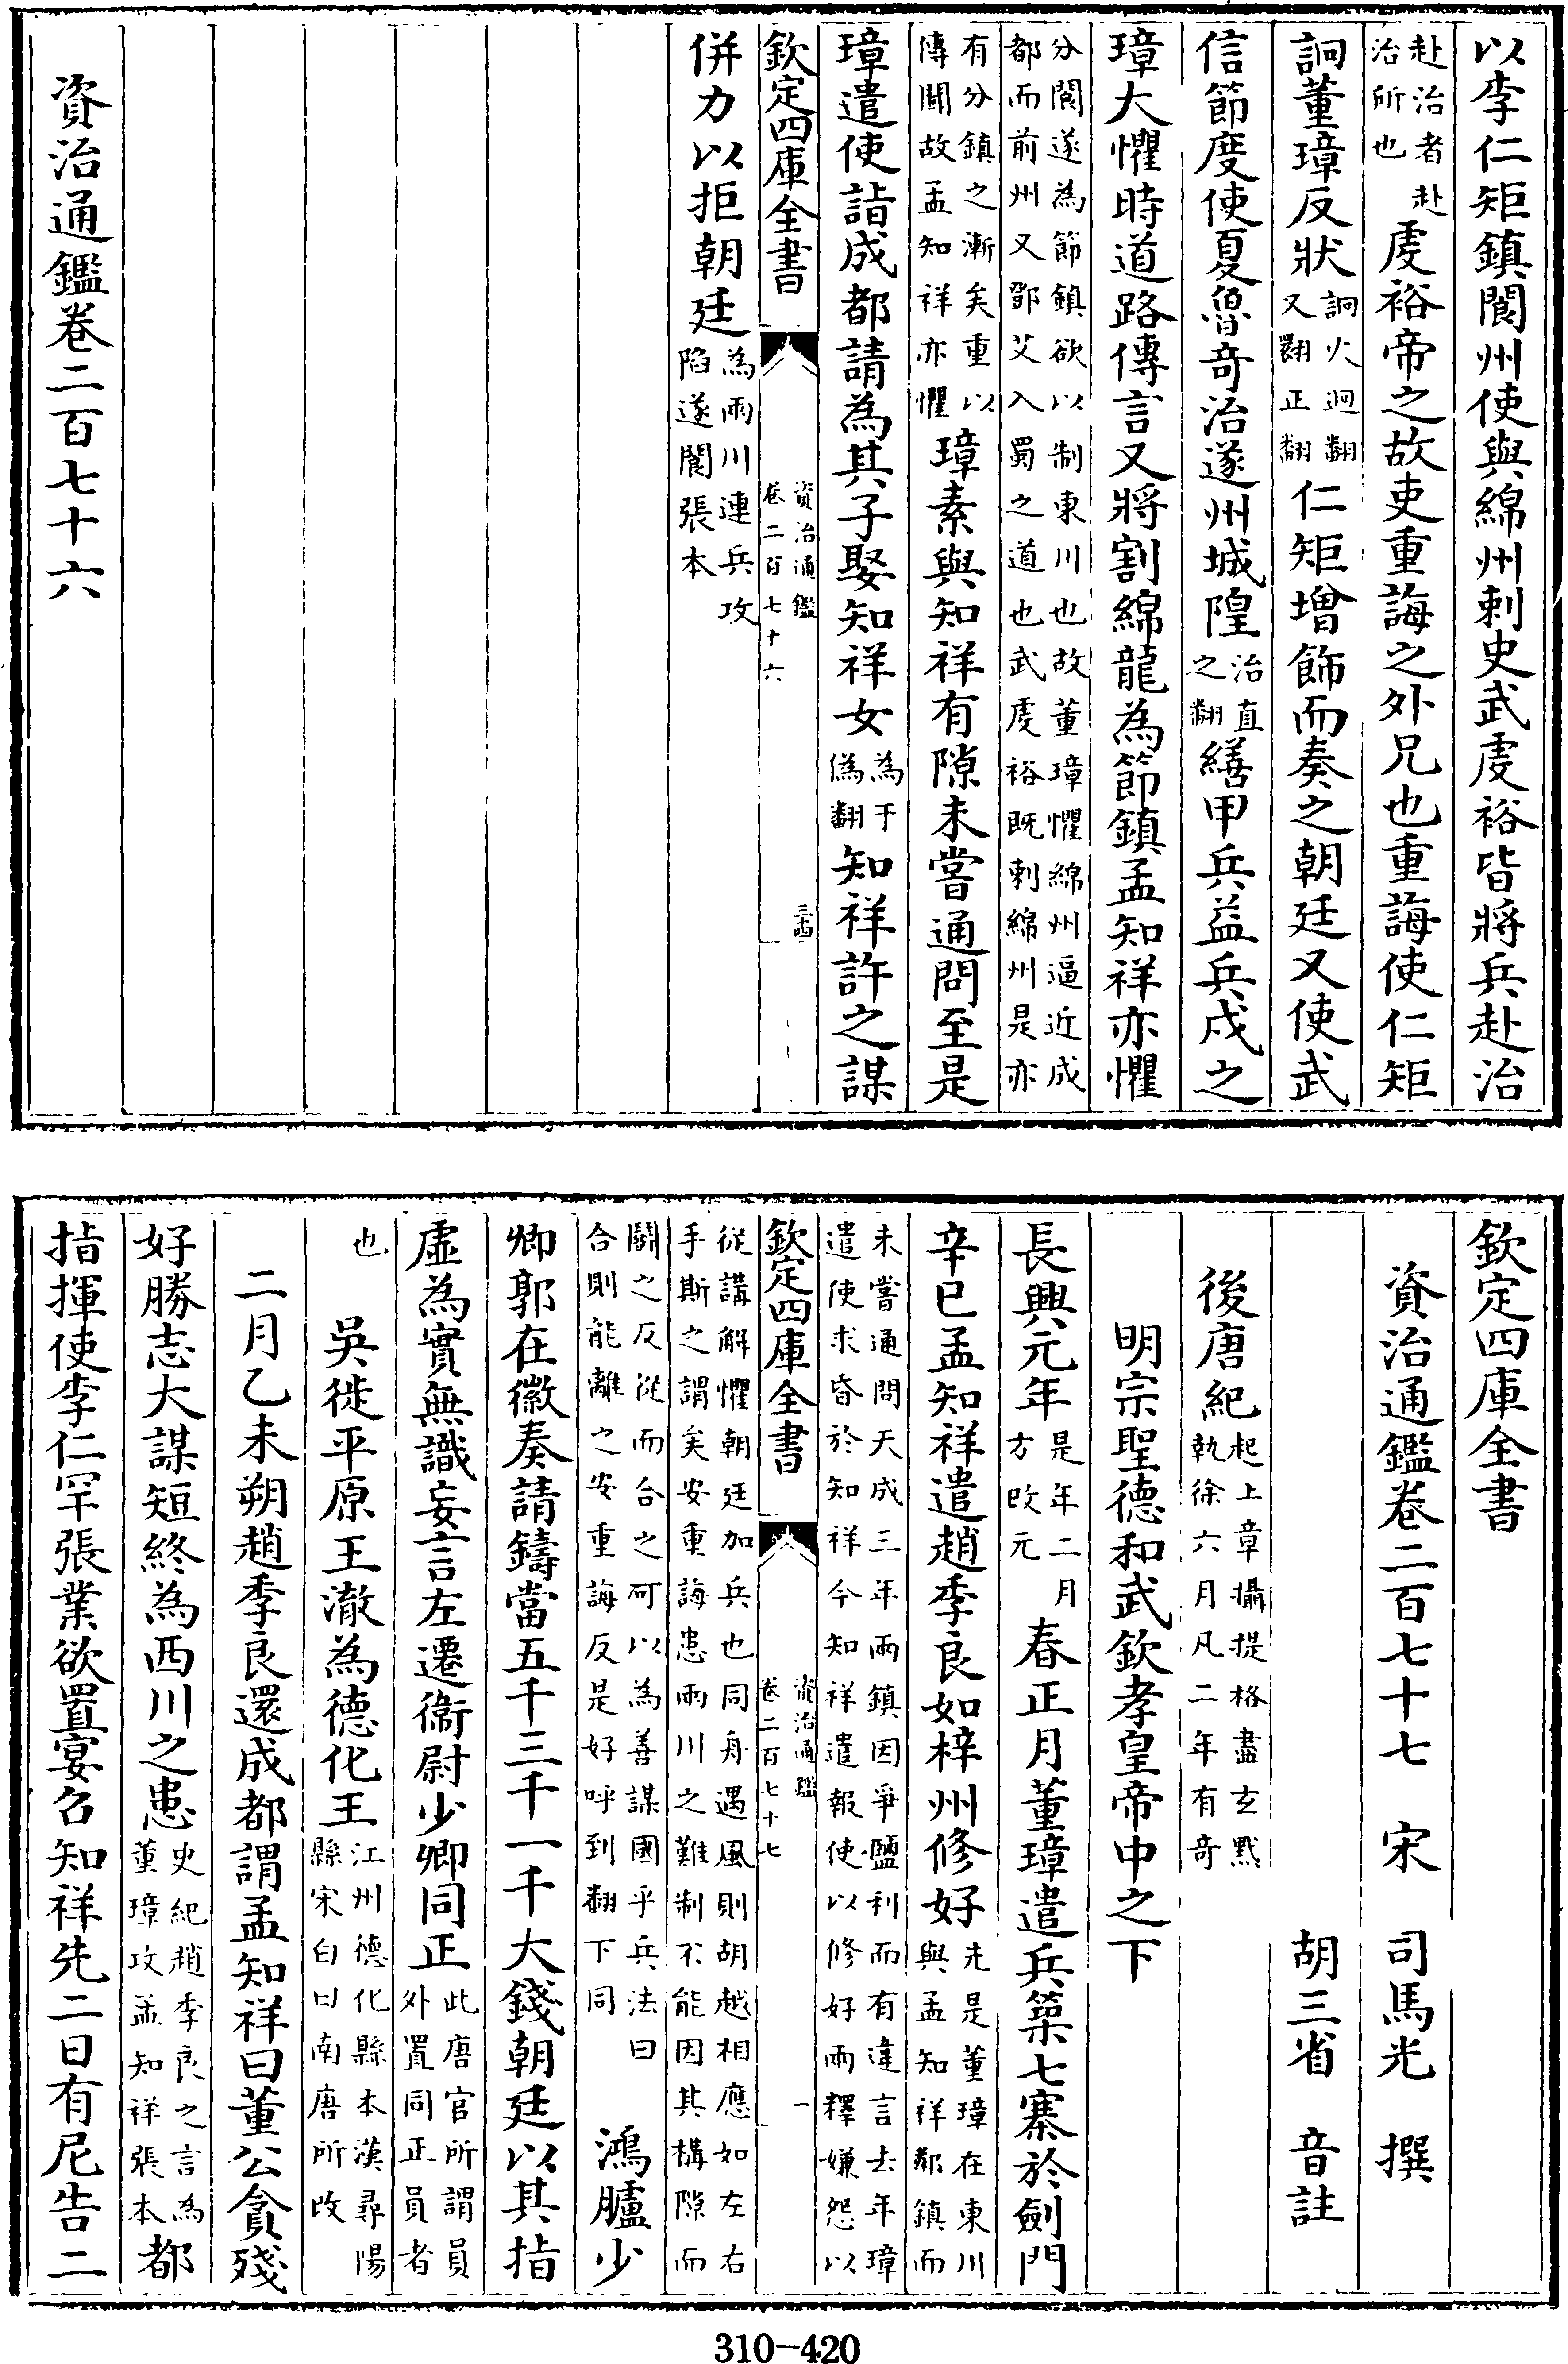 以李仁矩鎮閬州使與綿州刺史武䖍裕皆將兵赴治
赴治者赴
治所也
䖍裕帝之故吏重誨之外兄也重誨使仁矩
詗董璋反狀
詗火迥翻
又翾正翻
仁矩增飾而奏之朝廷又使武
信節度使夏魯奇治遂州城隍
治直
之翻
繕甲兵益兵戍之
璋大懼時道路傳言又將割綿龍為節鎮孟知祥亦懼
分閬遂為節鎮欲以制東川也故董璋懼綿州逼近成
都而前州又鄧艾入蜀之道也武䖍裕既刺綿州是亦
有分鎮之漸矣重以
傳聞故孟知祥亦懼
璋素與知祥有隙未嘗通問至是
璋遣使詣成都請為其子娶知祥女
為于
偽翻
知祥許之謀
欽定四庫全書
資治通鑑
卷二百七十六
三十四
併力以拒朝廷
為兩川連兵攻
陷遂閬張本
資治通鑑卷二百七十六
欽定四庫全書
資治通鑑卷二百七十七 宋 司馬光 撰
胡三省 音註
後唐紀
起上章攝提格盡玄黓
執徐六月凡二年有奇
明宗聖德和武欽孝皇帝中之下
長興元年
是年二月
方改元
春正月董璋遣兵築七寨於劍門
辛巳孟知祥遣趙季良如梓州修好
先是董璋在東川
與孟知祥鄰鎮而
未嘗通問天成三年兩鎮因爭鹽利而有違言去年璋
遣使求昏於知祥今知祥遣報使以修好兩釋嫌怨以
欽定四庫全書
資治通鑑
卷二百七十七
一
從講解懼朝廷加兵也同舟遇風則胡越相應如左右
手斯之謂矣安重誨患兩川之難制不能因其構隙而
鬭之反從而合之可以為善謀國乎兵法曰
合則能離之安重誨反是好呼到翻下同
鴻臚少
卿郭在徽奏請鑄當五千三千一千大錢朝廷以其指
虛為實無識妄言左遷衛尉少卿同正
此唐官所謂員
外置同正員者
也
吳徙平原王澈為德化王
江州德化縣本漢尋陽
縣宋白曰南唐所改
二月乙未朔趙季良還成都謂孟知祥曰董公貪殘
好勝志大謀短終為西川之患
史紀趙季良之言為
董璋攻孟知祥張本
都
指揮使李仁罕張業欲置宴召知祥先二日有尼告二
310-420